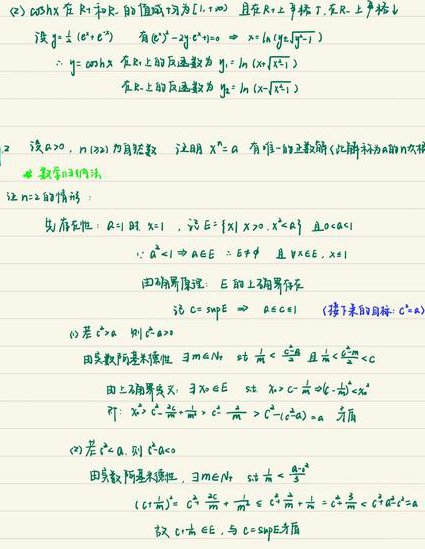 (2) coshx 在R+和R-的值域均为[1,+∞) 且在R+上严格↑,在R-上严格↓
设y=½(eˣ+e⁻ˣ) 有(eˣ)²-2y·eˣ+1=0 ⇒ x=ln(y±√(y²-1))
∴ y=coshx 在R+上的反函数为 y₁=ln(x+√(x²-1))
在R-上的反函数为 y₂=ln(x-√(x²-1))
2 设a>0, n(≥2)为自然数 证明 xⁿ=a 有唯一的正数解(此解称为a的n次
* 数学归纳法
证n=2的情形:
先存在性: a=1时 x=1 , 记E={x| x>0, x²<a} 且0<a<1
∵ a²<1 ⇒ a∈E ∴ E≠∅ 且∀x∈E, x≤1
由确界原理: E的上确界存在
记 c=supE ⇒ a≤c≤1 (接下来的目标: c²=a)
(1) 若c²>a 则c²-a>0
由实数阿基米德性 ∃m∈N+ s.t. 1/m < (c²-a)/2 且
由上确界定义: ∃x₀∈E s.t. x₀>c-1/m ⇒ (c-1/m)²<x₀²
x₀²>c²-2c/m+1/m²>c²-2/m>c²-(c²-a)=a 矛盾
(2) 若c²<a, 则c²-a<0
由实数阿基米德性, ∃m∈N+ s.t. 1/m < (a-c²)/3
(c+1/m)²=c²+2c/m+1/m² ≤ c²+2/m+1/m=c²+3/m<c²+a-c²=a
故 c+1/m∈E, 与c=supE矛盾